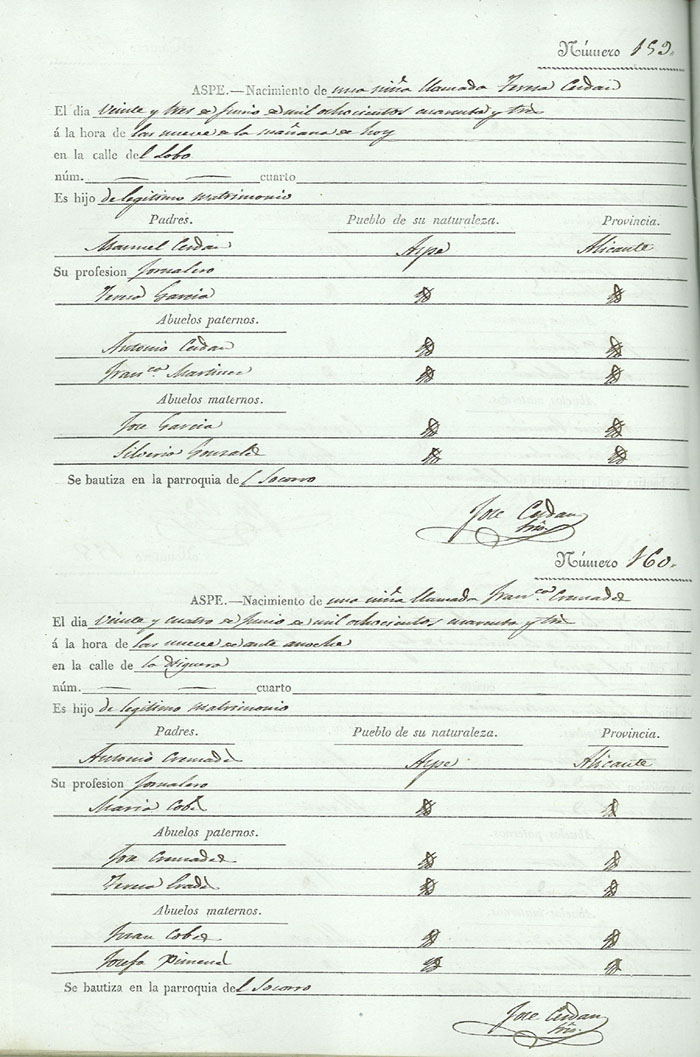 Número 159.
ASPE.—Nacimiento de una niña llamada Teresa Cerdan
El dia veinte y tres de Junio de mil ochocientos cuarenta y tres
á la hora de las nueve de la mañana de hoy
en la calle del Lobo
núm. — — cuarto
Es hijo de legitimo matrimonio
Padres. Pueblo de su naturaleza. Provincia.
Manuel Cerdan Aspe Alicante
Su profesion Jornalero
Teresa Garcia
Abuelos paternos.
Antonio Cerdan
Fran.ca Martinez
Abuelos maternos.
Jose Garcia
Silveria
Se bautiza en la parroquia del Socorro
Jose Cerdan
Número 160.
ASPE.—Nacimiento de una niña llamada Fran.ca Cremades
El dia veinte y cuatro de Junio de mil ochocientos cuarenta y tres
á la hora de las nueve de ante anoche
en la calle de la Higuera
núm. — — cuarto
Es hijo de legitimo matrimonio
Padres. Pueblo de su naturaleza. Provincia.
Antonio Cremades Aspe Alicante
Su profesion Jornalero
Maria Cobes
Abuelos paternos.
Jose Cremades
Teresa Prades
Abuelos maternos.
Juan Cobes
Josefa Pimenel
Se bautiza en la parroquia del Socorro
Jose Cerdan